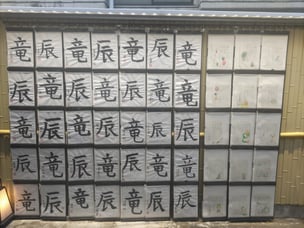 竜辰竜辰竜辰竜
辰竜辰竜辰辰竜
竜辰竜辰竜辰辰
辰竜辰竜辰竜竜
竜辰竜辰竜辰竜